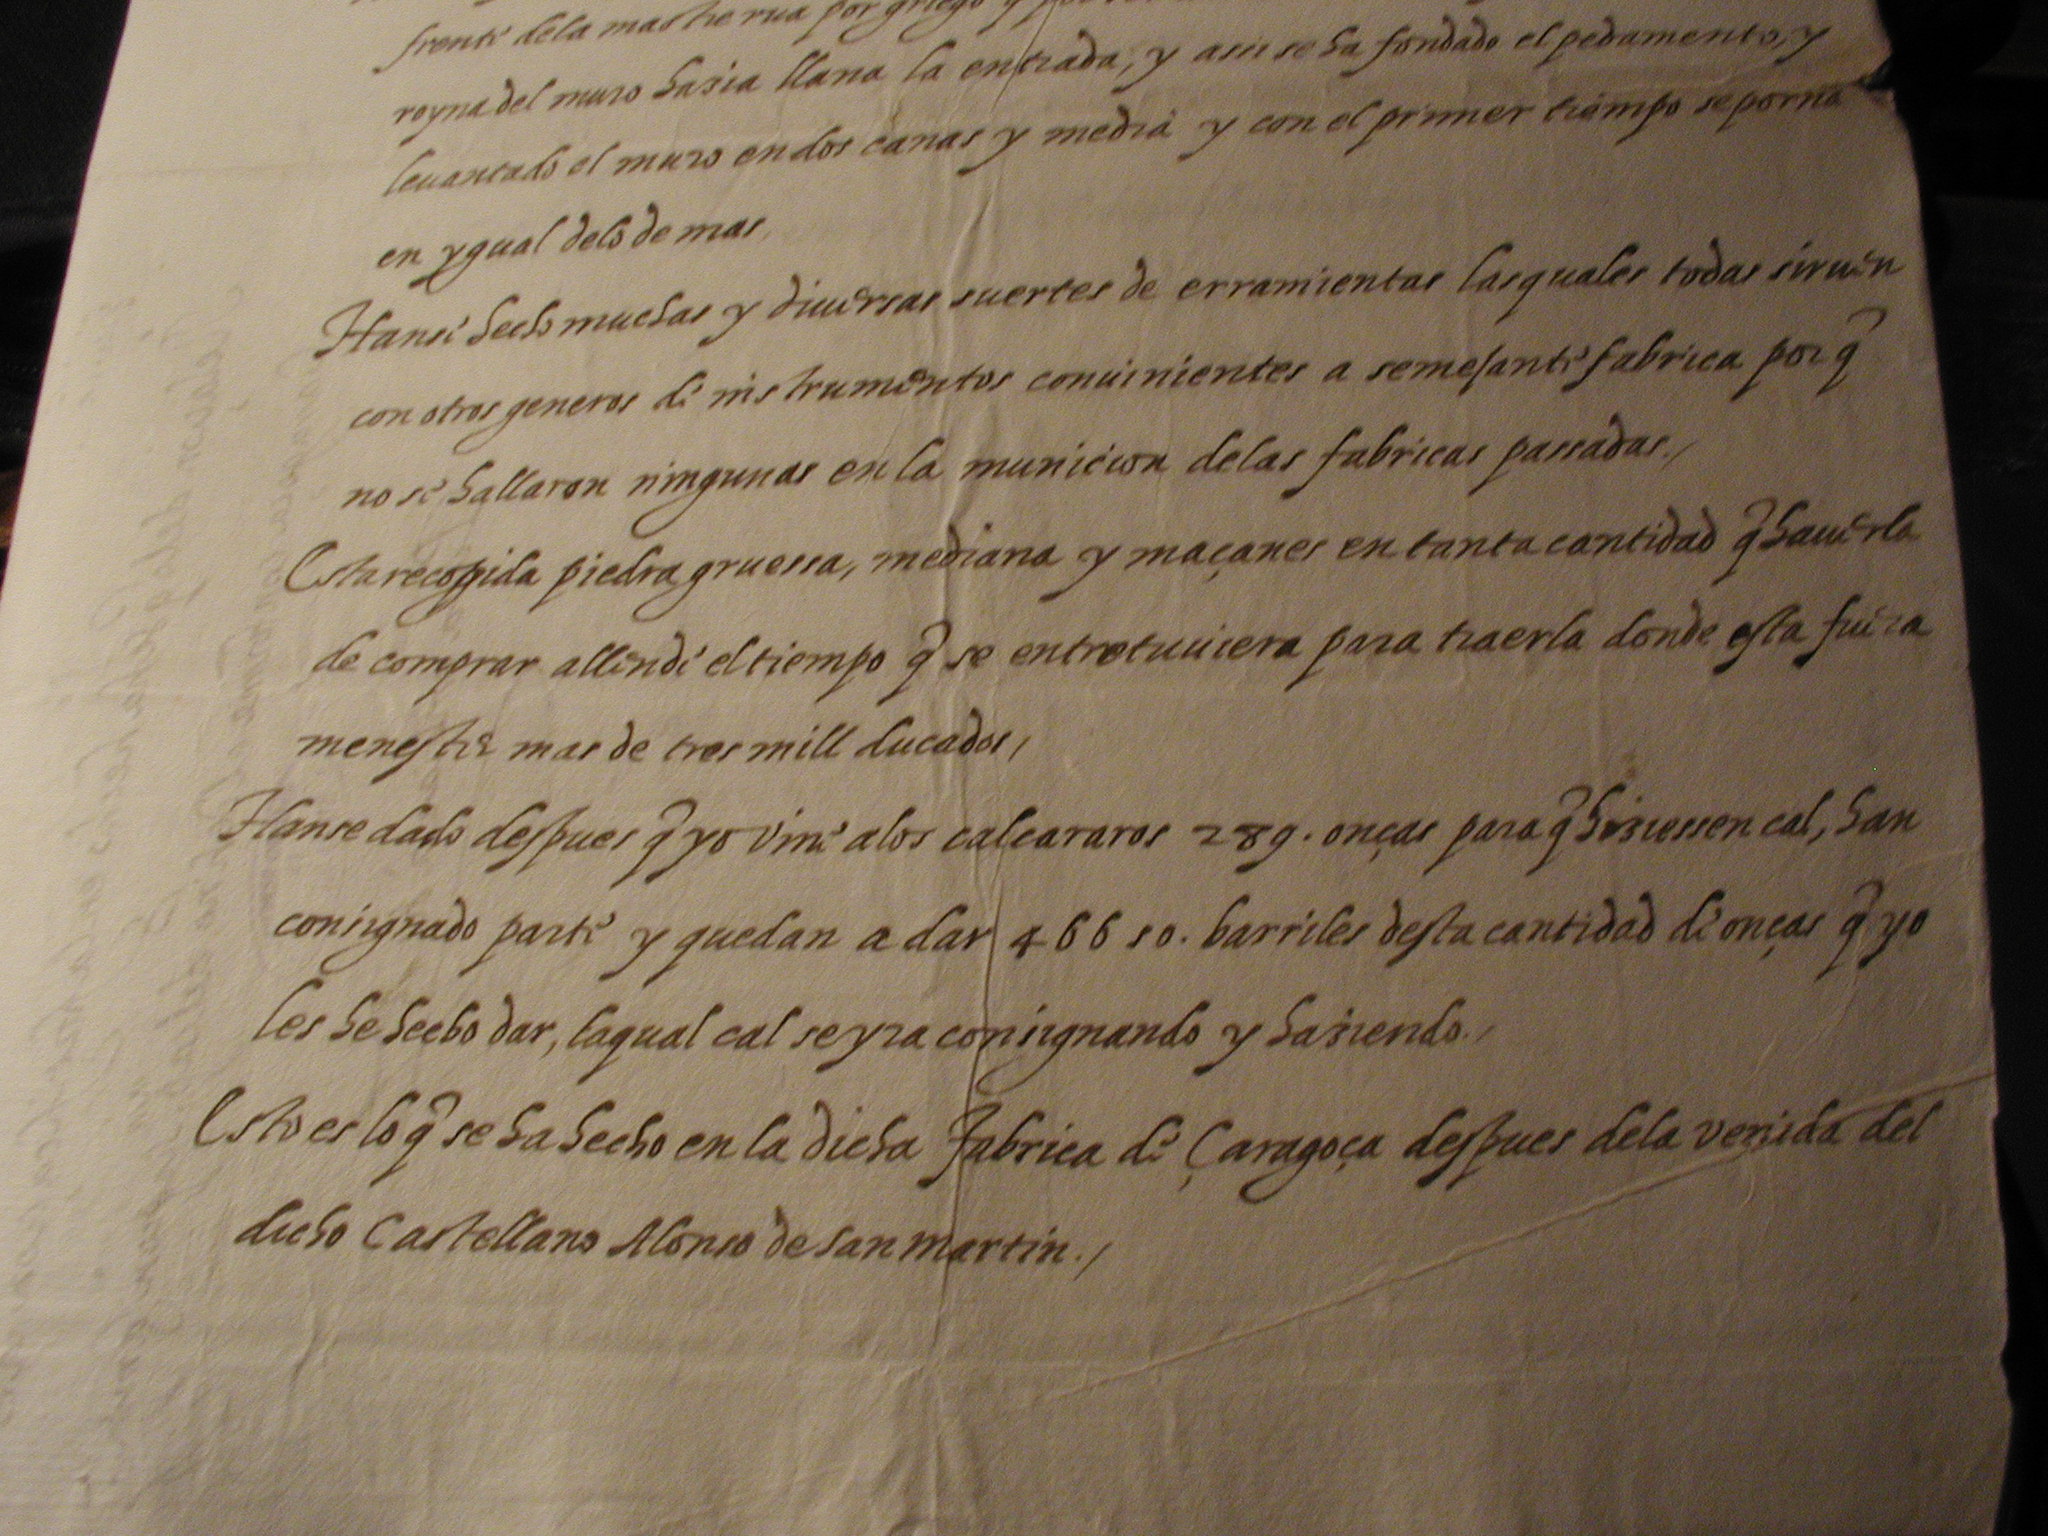 frente dela mastre rua por griego q
royna del muro hazia llana la entrada, y assi se ha fondado el pedamento, y
leuantado el muro en dos canas y media y con el primer tiempo se porna
en ygual delo de mas,
Hansé hecho muchas y diuersas suertes de erramientas las quales todas siruen
con otros generos de instrumentos conuinientes a semejante fabrica por q̃
no se hallaron ningunas en la municion delas fabricas passadas./
Esta recogida piedra gruessa, mediana y maçanes en tanta cantidad q̃ hauerla
de comprar allende el tiempo q̃ se entretuuiera para traerla donde esta fuera
menester mas de tres mill ducados,/
Hanse dado despues q̃ yo vine alos calcararos 289. onças para q̃ hiziessen cal, han
consignado parte y quedan a dar 46650. barriles desta cantidad de onças q̃ yo
les he hecho dar, laqual cal se yra consignando y haziendo./
Esto es lo q̃ se ha hecho en la dicha Fabrica de Çaragoça despues dela venida del
dicho Castellano Alonso de San martin./